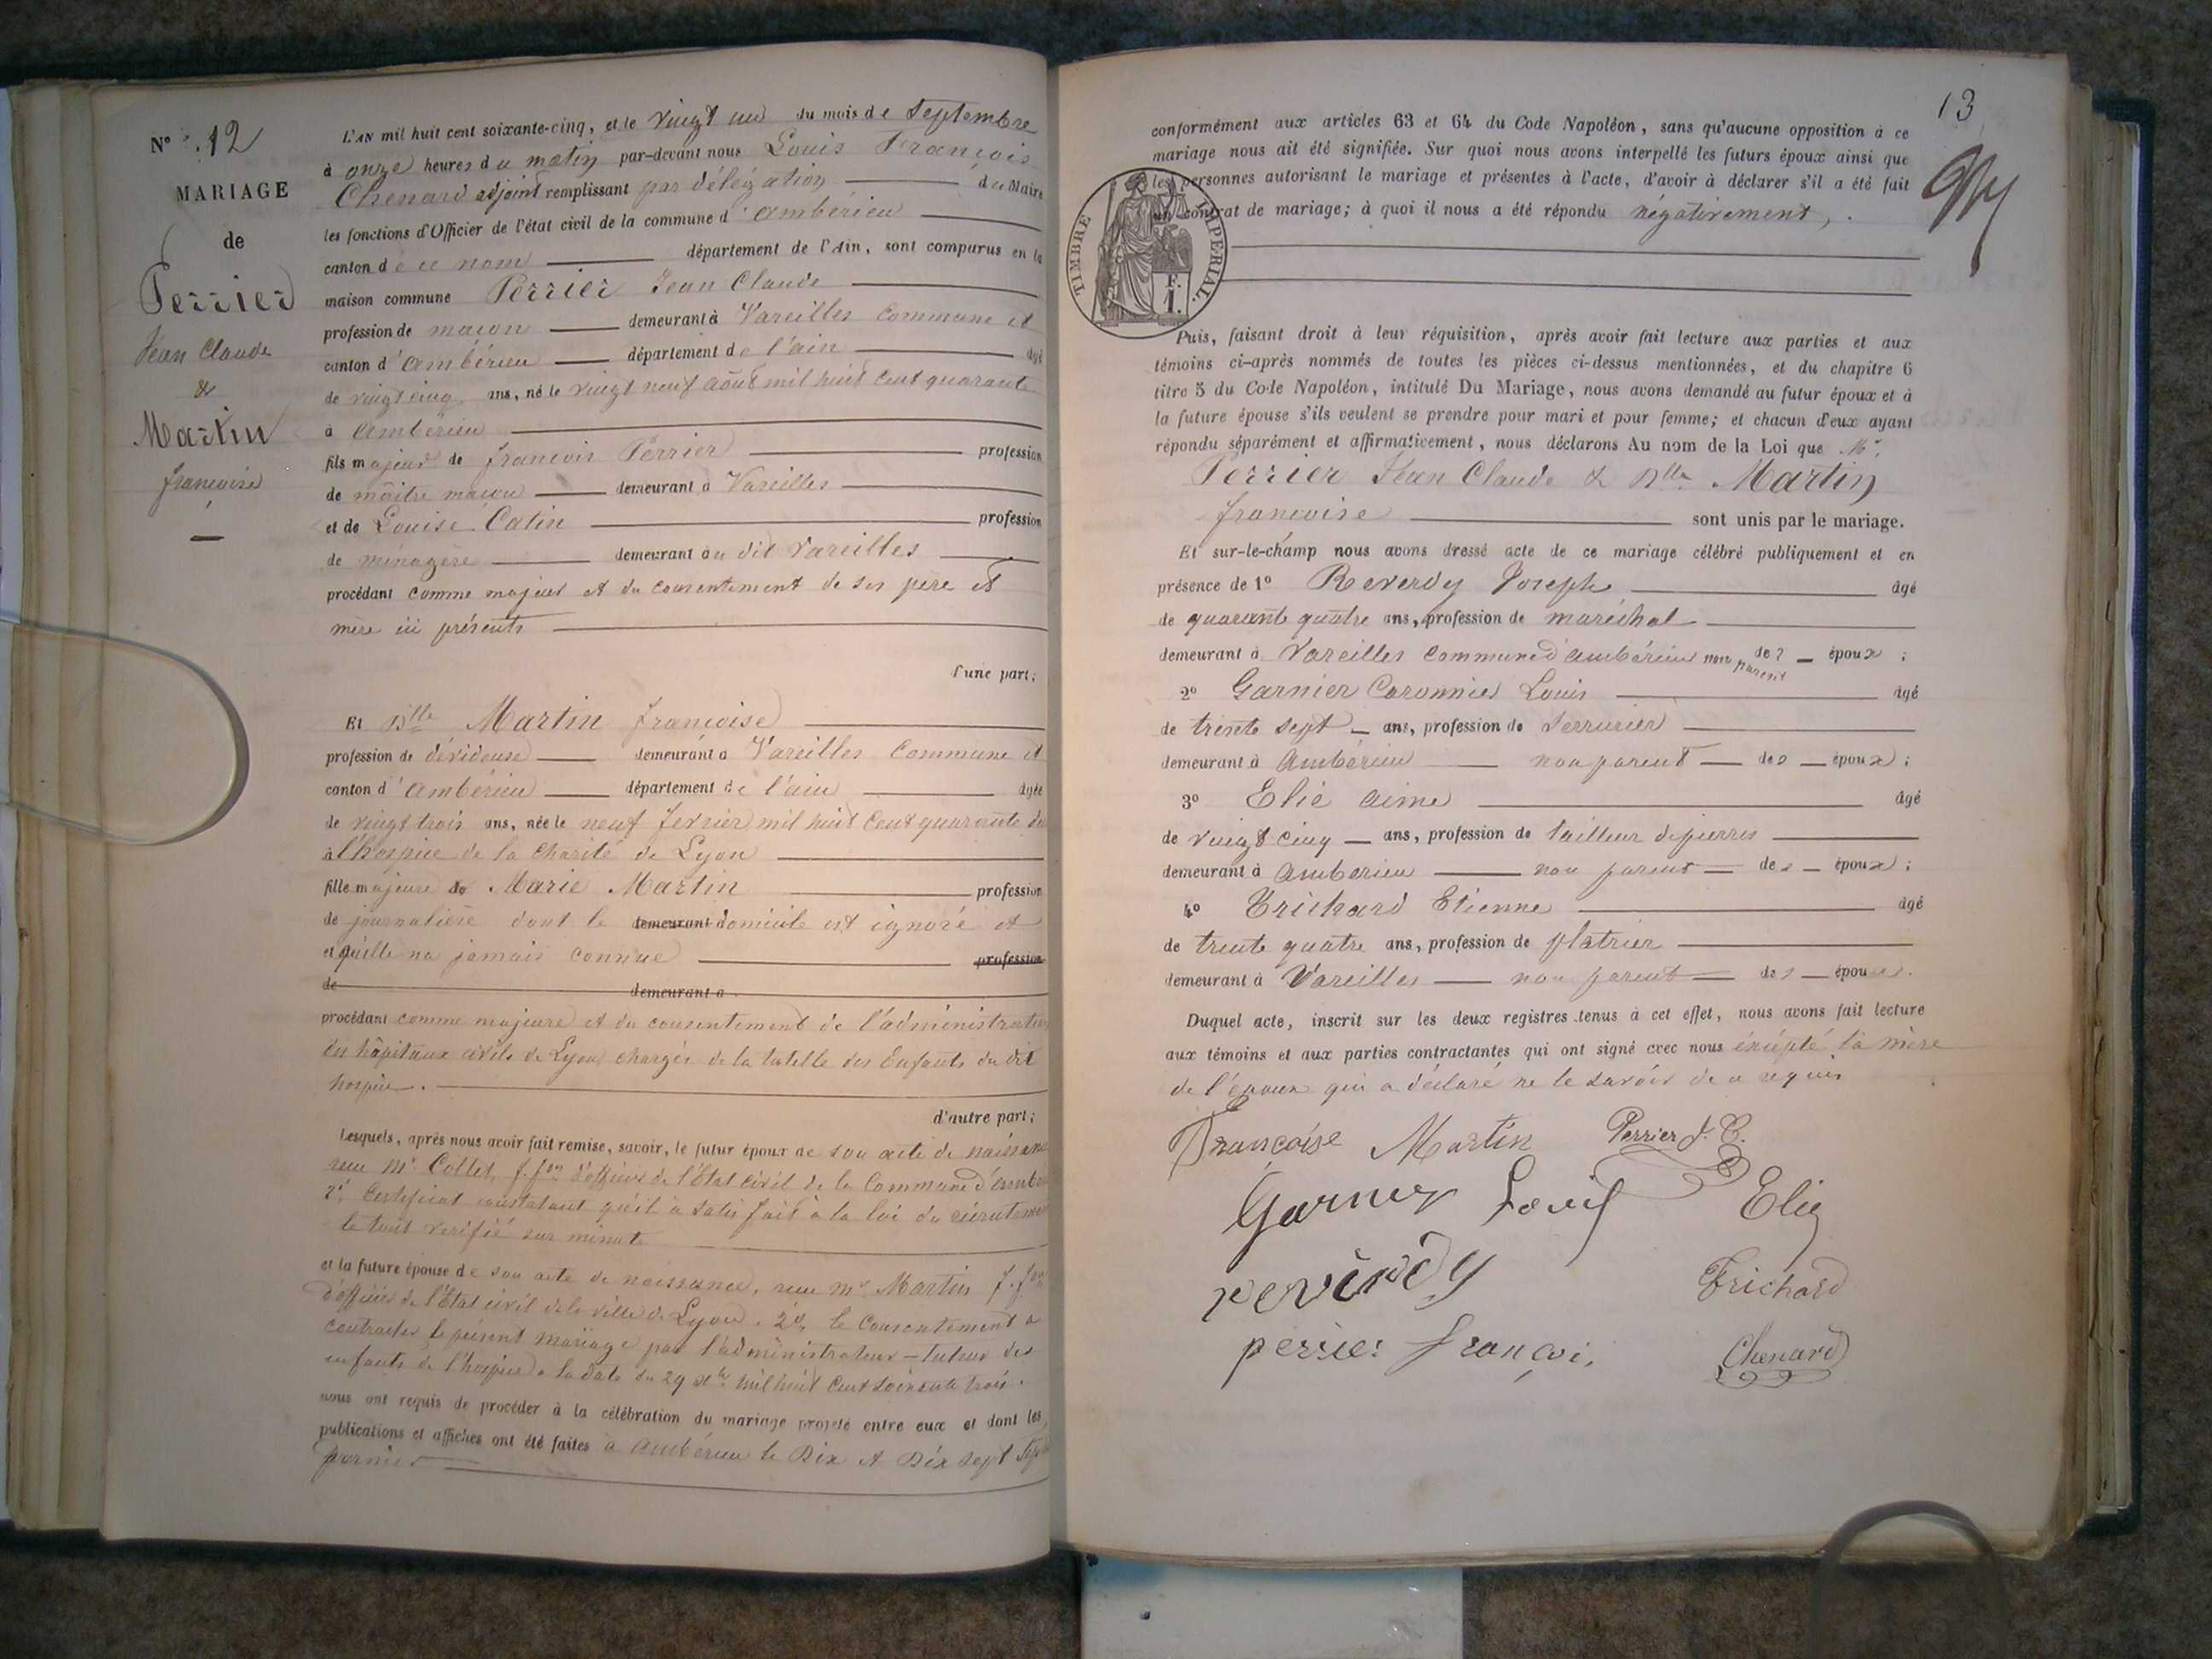 N° 12
MARIAGE
de
Perrier
Jean Claude
&
Martin
francoise
L'AN mil huit cent soixante-cinq, et le vingt un du mois de Septembre
à onze heures du matin par-devant nous Louis François
Chenard adjoint remplissant par délégation du Maire
les fonctions d'Officier de l'état civil de la commune d'ambérieu
canton de ce nom département de l'Ain, sont comparus en la
maison commune Perrier Jean Claude
profession de maçon demeurant à Vareilles Commune et
canton d'ambérieu département de l'ain âgé
de vingt cinq ans, né le vingt neuf août mil huit cent quarante
à ambérieu
fils majeur de francois Perrier profession
de maître maçon demeurant à Vareilles
et de Louise Catin profession
de ménagère demeurant au dit Vareilles
procédant comme majeur et du consentement de ses père et
mère ici présents
d'une part;
Et Dlle Martin francoise
profession de dévideuse demeurant à Vareilles Commune et
canton d'ambérieu département de l'ain âgée
de vingt trois ans, née le neuf fevrier mil huit cent quarante
à l'hospice de la Charité de Lyon
fille majeure de Marie Martin profession
de journalière dont le demeurant domicile est ignoré et
et qu'elle na jamais connue profession
de demeurant à
procédant comme majeure et du consentement de l'administration
des hôpitaux civils de Lyon chargés de la tutelle des Enfants du dit
hospice.
d'autre part;
Lesquels, après nous avoir fait remise, savoir, le futur époux de son acte de naissance
reçu Mr Collet, f.fon d'officier de l'Etat civil de la Commune d'ambé
2° Certificat constatant qu'il a satisfait à la loi du récrutement
le tout vérifié sur minute
et la future épouse de son acte de naissance, reçu mr Martin f.fon
d'officier de l'Etat civil de la ville de Lyon. 2° le Consentement à
contracter le présent mariage par l'administrateur-tuteur des
enfants de l'hospice à la date du 29 mil huit cent soixante trois.
nous ont requis de procéder à la célébration du mariage projeté entre eux et dont les
publications et affiches ont été faites à ambérieu le Dix et Dix sept
13
conformément aux articles 63 et 64 du Code Napoléon, sans qu'aucune opposition à ce
mariage nous ait été signifiée. Sur quoi nous avons interpellé les futurs époux ainsi que
les personnes autorisant le mariage et présentes à l'acte, d'avoir à déclarer s'il a été fait
un contrat de mariage; à quoi il nous a été répondu négativement,.
TIMBRE IMPERIAL.
F.
1.
Puis, faisant droit à leur réquisition, après avoir fait lecture aux parties et aux
témoins ci-après nommés de toutes les pièces ci-dessus mentionnées, et du chapitre 6
titre 5 du Code Napoléon, intitulé Du Mariage, nous avons demandé au futur époux et à
la future épouse s'ils veulent se prendre pour mari et pour femme; et chacun d'eux ayant
répondu séparément et affirmativement, nous déclarons Au nom de la Loi que Mr
Perrier Jean Claude & Dlle Martin
francoise sont unis par le mariage.
Et sur-le-champ nous avons dressé acte de ce mariage célébré publiquement et en
présence de 1° Reverdy Joseph âgé
de quarante quatre ans, profession de maréchal
demeurant à Vareilles Commune d'ambérieu non parent des époux;
2° Garnier Caronnier Louis âgé
de trente sept ans, profession de Serrurier
demeurant à ambérieu non parent des époux;
3° Elie aimé âgé
de vingt cinq ans, profession de tailleur de pierres
demeurant à ambérieu non parent des époux;
4° Trichard Etienne âgé
de trente quatre ans, profession de platrier
demeurant à Vareilles non parent des époux.
Duquel acte, inscrit sur les deux registres tenus à cet effet, nous avons fait lecture
aux témoins et aux parties contractantes qui ont signé avec nous excépté la mère
de l'époux qui a déclaré ne le savoir de ce requis
Françoise Martin Perrier J. C.
Garnier Louis Elie
reverdy Trichard
perrier françoi, Chenard